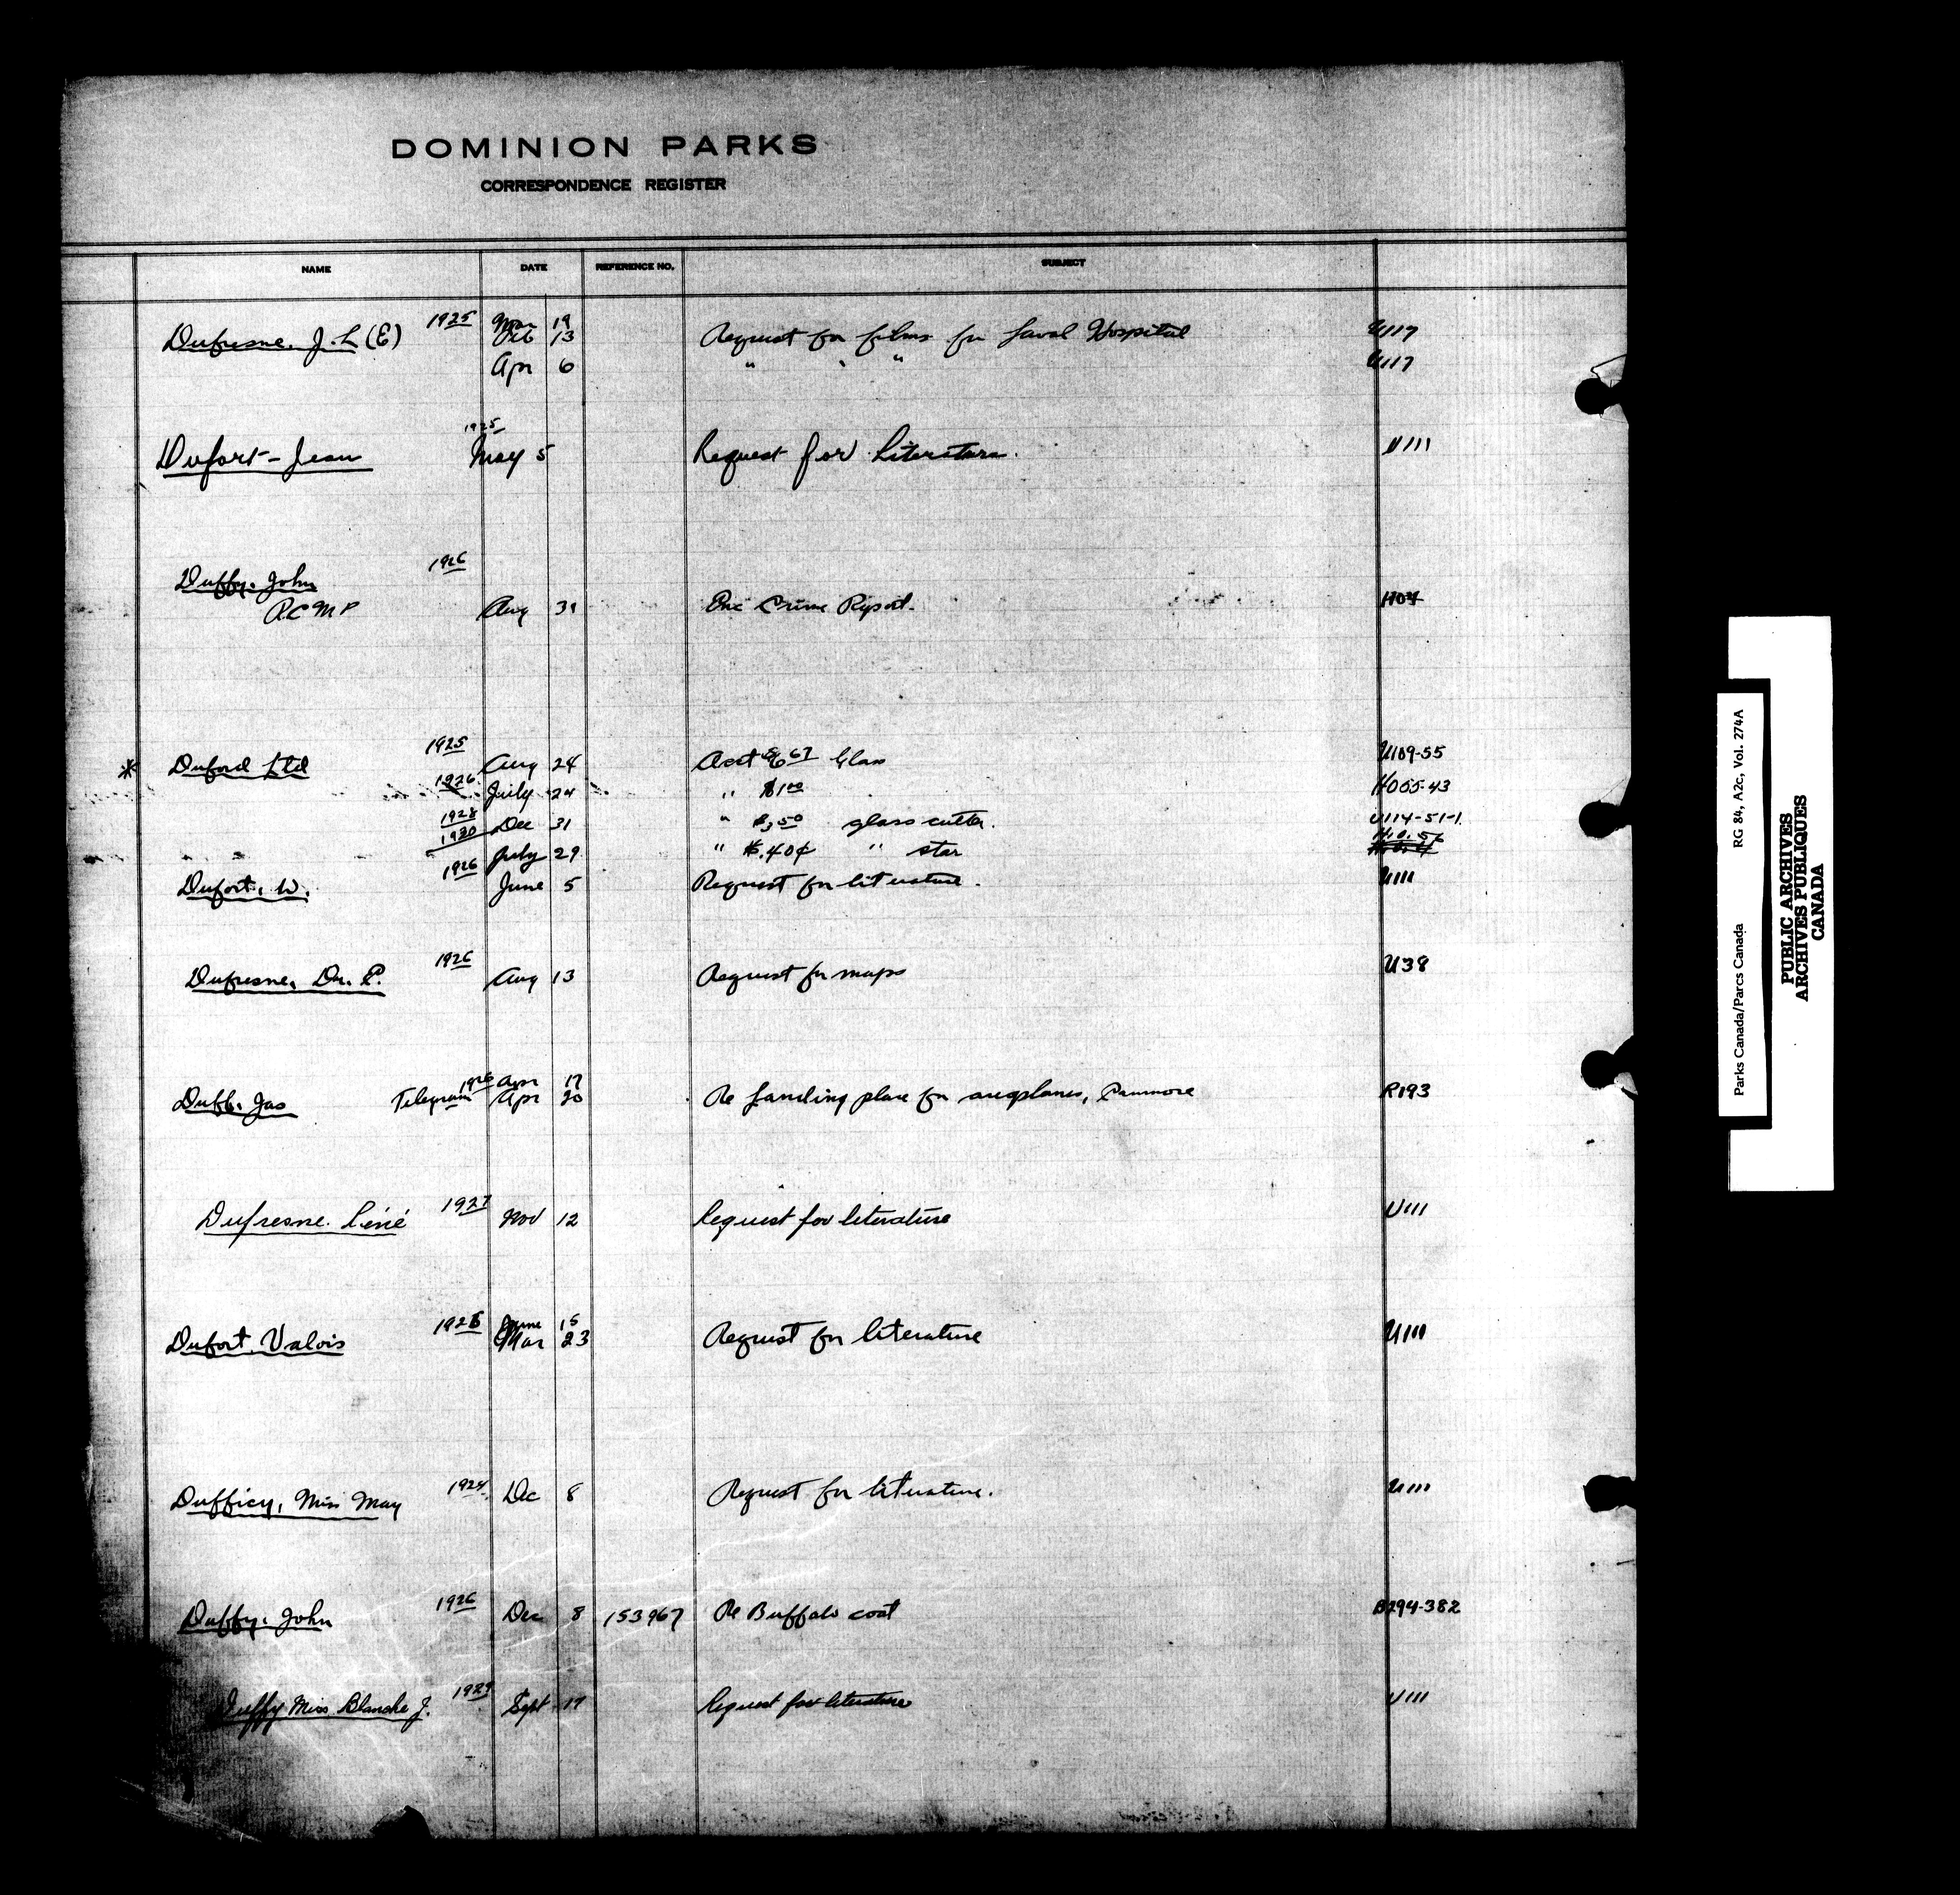 DOMINION PARKS
CORRESPONDENCE REGISTER
NAME DATE REFERENCE NO. SUBJECT
1925 Mar 19
Dufresne, J. L (E) Feb 13 Request for films for Laval Hospital U117
Apr 6 " " " U117
1925
Dufort - Jean May 5 Request for Literature. U111
1926
Duffy, John
R.C.M.P Aug 31 Enc Crime Report.
* Duford Ltd 1925 Aug 24 Acct Glass U109-55
1926 July 24 " $1.00
1928 Dec 31 " glass cutter. U114-51-1
1930 July 29 " $.40¢ " star
Dufort, W. 1926 June 5 Request for literature. U111
Dufresne, Dr. P. 1926 Aug 13 Request for maps U38
1926 Apr 17
Duff, Jas Telegram Apr 20 Re Landing place for aeroplanes, Canmore R193
Dufresne. Réné 1927 Nov 12 Request for literature U111
June 15
Dufort, Valois 1928 Mar 23 Request for literature U111
Dufficy, Miss May Dec 8 Request for literature. U111
Duffy, John 1926 Dec 8 153967 Re Buffalo coat B294-382
Duffy Miss Blanche J. 1929 Sept 17 Request for literature U111
Parks Canada/Parcs Canada RG 84, A2c, Vol. 274A
PUBLIC ARCHIVES
ARCHIVES PUBLIQUES
CANADA